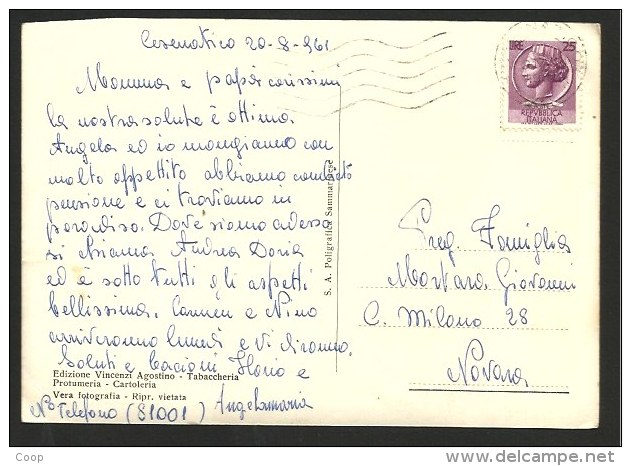 Cesenatico 20-8-961
Mamma e papà carissimi
la nostra salute è ottima
Angela ed io mangiamo con
molto appetito abbiamo cambiato
pensione e ci troviamo in
paradiso. Dove siamo adesso
si chiama Andrea Doria
ed è sotto tutti gli aspetti
bellissima. Carmen e Nino
arriveranno lunedì e vi diranno.
Saluti e bacioni Ilario e
Angelamaria
N° Telefono (81001)
Edizione Vincenzi Agostino - Tabaccheria
Protumeria - Cartoleria
Vera fotografia - Ripr. vietata
S. A. Poligrafica Sammarinese
LIRE 25
REPVBBLICA
ITALIANA
Preg. Famiglia
Mortara Giovanni
C. Milano 28
Novara
Coop
www.delcampe.net